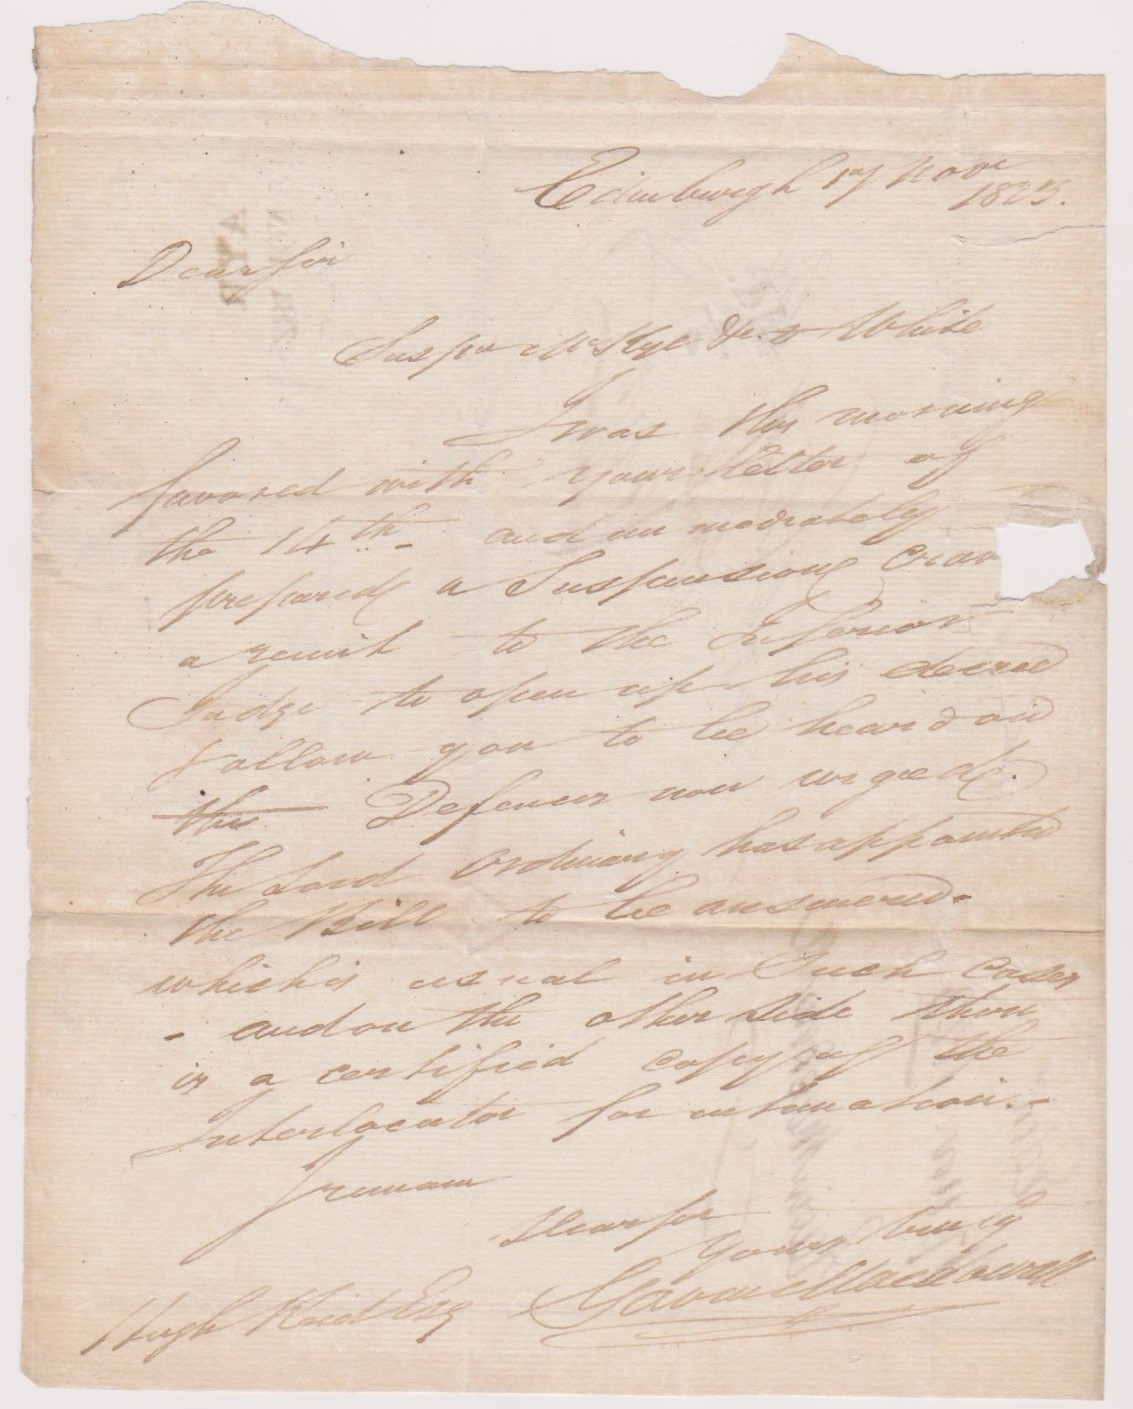 Edinburgh 17 Novr
1823.
Dear Sir
Suspn McKye &c. v White
I was this morning
favored with your letter of
the 14th - and immediately
prepared a Suspension crav
a remit to the Inferior
Judge to open up his decree
& allow you to be heard on
the Defences now urged.
The Lord Ordinary has appointed
the Bill to be answered -
which is usual in Such cases
- and on the other side there
is a certified copy of the
Interlocutor for intimation. -
I remain
Dear Sir
Yours truly
Hugh Reid Esq